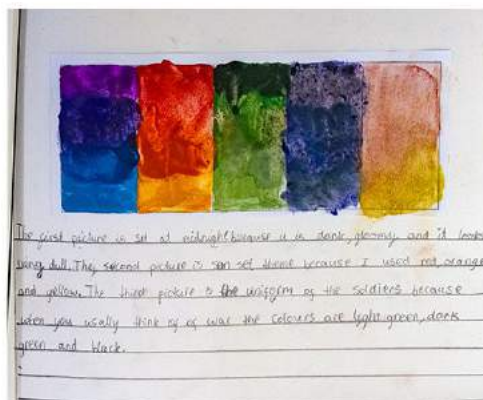 The first picture is set at midnight because it is dark, gloomy and it looks
very dull. They second picture is sun set theme because I used red, orange
and yellow. The third picture is the uniform of the soldiers because
when you usally think of war the colours are light green, dark
green and black.